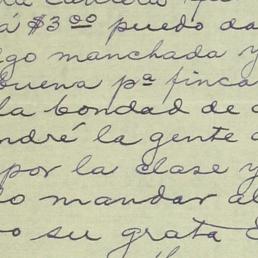 á $3.00 puedo da
go manchada y
buena pª finca
la bondad de
ndré la gente
por la clase y
o mandar al
o su grata